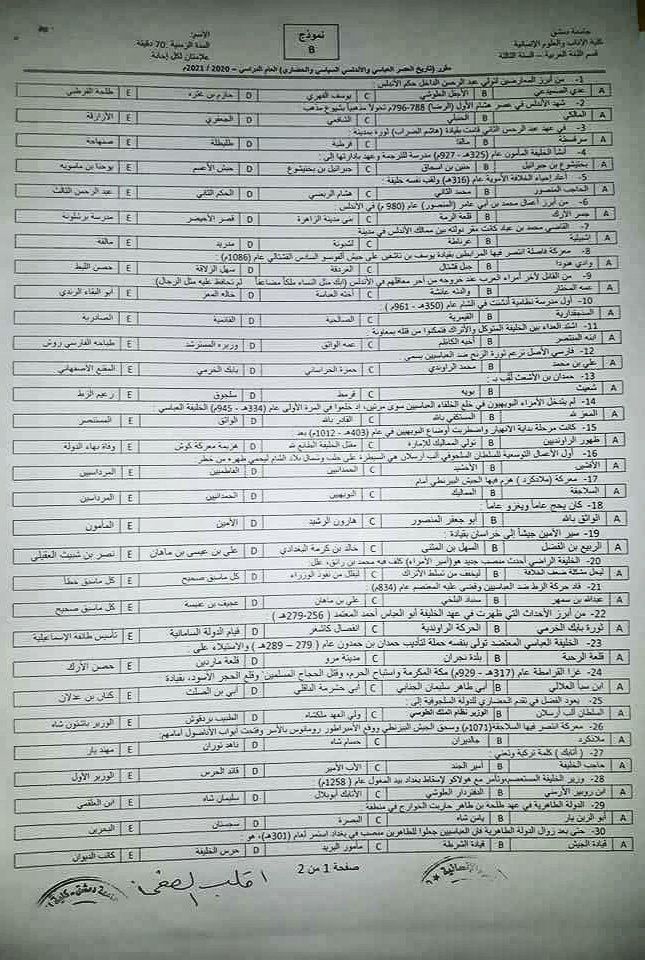 جامعة دمشق
كلية الآداب والعلوم الإنسانية
قسم اللغة العربية – السنة الثالثة
نموذج
B
الاسم:
المدة الزمنية: 70 دقيقة
علامتان لكل إجابة
مقرر (تاريخ العصر العباسي والأندلسي السياسي والحضاري) العام الدراسي – 2020 / 2021م
1- من أبرز المعارضين لتولي عبد الرحمن الداخل حكم الأندلس
A عدي الصميدعي B الأجفل الطوشي C يوسف الفهري D حازم بن عذره E طلحة القرطبي
2- شهد الأندلس في عصر هشام الأول (الرضا) 788-796م تحولاً مذهبياً بشيوع مذهب
A المالكي B الحنبلي C الشافعي D الجعفري E الأزارقة
3- في عهد عبد الرحمن الثاني قامت بقيادة (هاشم الضراب) ثورة بمدينة:
A سرقسطة B مالقا C قرطبة D طليطلة E صنهاجه
4- أنشأ الخليفة المأمون عام (325هـ - 927م) مدرسة للترجمة وعهد بإدارتها إلى:
A بختيشوع بن جبرائيل B حنين بن اسحاق C جبرائيل بن بختيشوع D حبش الأعسم E يوحنا بن ماسويه
5- أعاد إحياء الخلافة الأموية عام (316هـ) ولقب نفسه خليفة:
A الحاجب المنصور B محمد الثاني C هشام الربضي D الحكم الثاني E عبد الرحمن الثالث
6- من أبرز أعمال محمد بن أبي عامر (المنصور) عام (980 م) في الأندلس.
A جسر الأرك B قلعة الرمة C بنى مدينة الزاهرة D قصر الأخيضر E مدرسة برشلونة
7- القاضي محمد بن عباد كانت مقر دولته بين ممالك الأندلس في مدينة
A إشبيلية B غرناطة C لشبونة D مدريد E مالقة
8- معركة فاصلة انتصر فيها المرابطين بقيادة يوسف بن تاشفين على جيش ألفونسو السادس القشتالي عام (1086م):
A وادي هودا B جبل قشتال C الغردقة D سهل الزلاقة E حصن الليط
9- من القائل لآخر أمراء العرب عند خروجه من آخر معاقلهم في الأندلس (ابكِ مثل النساء ملكاً مضاعاً لم تحافظ عليه مثل الرجال)
A عمه المختار B والدته عائشة C أخته العباسة D خاله المعز E أبو البقاء الرندي
10- أول مدرسة نظامية أنشئت في الشام عام (350هـ - 961م):
A السنجقدارية B القيمرية C الصالحية D القائمية E الصادرية
11- اشتد العداء بين الخليفة المتوكل والأتراك فتمكنوا من قتله بمعاونة
A ابنه المنتصر B أخيه الكاظم C عمه الواثق D وزيره المسترشد E طباخه الفارسي روش
12- فارسي الأصل تزعم ثورة الزنج ضد العباسيين يسمى
A علي بن محمد B محمد الراوندي C حمزة الخراساني D بابك الخرمي E المقنع الأصفهاني
13- حمدان بن الأشعث لقب بـ:
A شعيث B بويه C قرمط D سلجوق E زعيم الزط
14- لم يتدخل الأمراء البويهيون في خلع الخلفاء العباسيين سوى مرتين، إذ خلعوا في المرة الأولى عام (334هـ - 945م) الخليفة العباسي:
A المعز لله B المستكفي بالله C القادر بالله D الواثق E المستنصر
15- كانت مرحلة بداية الانهيار واضطربت أوضاع البويهيين في عام (403هـ - 1012م) بعد
A ظهور الراونديين B تولي المماليك للإمارة C مقتل الخليفة الطائع لله D هزيمة معركة كوش E وفاة بهاء الدولة
16- أول الأعمال التوسعية للسلطان السلجوقي ألب أرسلان هي السيطرة على حلب وشمال بلاد الشام ليحمي ظهره من خطر:
A الأفشين B الأخشيد C الحمدانيين D الفاطميين E المرداسيين
17- معركة (ملاذكرد) هزم فيها الجيش البيزنطي أمام
A السلاجقة B المماليك C البويهيين D الحمدانيين E المرداسين
18- كان يحج عاماً ويغزو عاماً:
A الواثق بالله B أبو جعفر المنصور C هارون الرشيد D الأمين E المأمون
19- سير الأمين جيشاً إلى خراسان بقيادة:
A الربيع بن الفضل B السهل بن المثنى C خالد بن كرمة البغدادي D علي بن عيسى بن ماهان E نصر بن شبيث العقيلي
20- الخليفة الراضي أحدث منصب جديد هو(أمير الأمراء) كلف فيه محمد بن رائق، علل
A ليحل مشكلة ضعف الخلافة B ليخفف من تسلط الأتراك C ليقلل من نفوذ الوزراء D كل ماسبق صحيح E كل ماسبق خطأ
21- قاد حركة الزط ضد العباسيين وقضي عليه المعتصم عام (834م):
A عبدالله بن سمهر B سنباد البلخي C علي بن ماهان D عجيف بن عنبسة E كل ماسبق صحيح
22- من أبرز الأحداث التي ظهرت في عهد الخليفة أبو العباس أحمد المعتمد (256-279هـ)
A ثورة بابك الخرمي B الحركة الراوندية C انفصال كاشغر D قيام الدولة السامانية E تأسيس طائفة الإسماعيلية
23- الخليفة العباسي المعتضد تولى بنفسه حملة لتأديب حمدان بن حمدون عام (279 – 289هـ) والاستيلاء على:
A قلعة الرحبة B بلدة نجران C مدينة مرو D قلعة ماردين E حصن الأرك
24- غزا القرامطة عام (317هـ - 929م) مكة المكرمة واستباح الحرم، وقتل الحجاج المسلمين وقلع الحجر الأسود، بقيادة
A ابن سبأ العلالي B أبي طاهر سليمان الجنابي C أبي حشرمة الباقلي D أبي بن الصلت E كنان بن عدلان
25- يعود الفضل في تقدم الحضاري للدولة السلجوقية إلى:
A السلطان ألب أرسلان B الوزير نظام الملك الطوسي C ولي العهد ملكشاه D الطبيب بردقوش E الوزير باشتون شاه
26- معركة انتصر فيها السلاجقة(1071م) وسحق الجيش البيزنطي ووقع الأمبراطور رومانوس بالأسر وفتحت أبواب الأناضول أمامهم.
A ملاذكرد B جالديران C حسام شاه D ناهد توران E مهند يار
27- ( أتابك ) كلمة تركية وتعني:
A حاجب الخليفة B أمير الجند C الأب الأمير D قائد الحرس E الوزير الأول
28- وزير الخليفة المستعصم،وتآمر مع هولاكو لإسقاط بغداد بيد المغول عام ( 1258م):
A ابن روبين الأرمني B الدفتردار الطوشي C الأتابك أبوبلال D سليمان شاه E ابن العلقمي
29- الدولة الطاهرية في عهد طلحة بن طاهر حاربت الخوارج في منطقة
A أبو الرين يار B يامن شاه C البصرة D سجستان E البحرين
30- حتى بعد زوال الدولة الطاهرية فان العباسيين جعلوا للطاهرين منصب في بغداد استمر لعام (301هـ)، هو:
A قيادة الجيش B قيادة الشرطة C مأمور البريد D حرس الخليفة E كاتب الديوان
صفحة 1 من 2
اقلب الصفحة